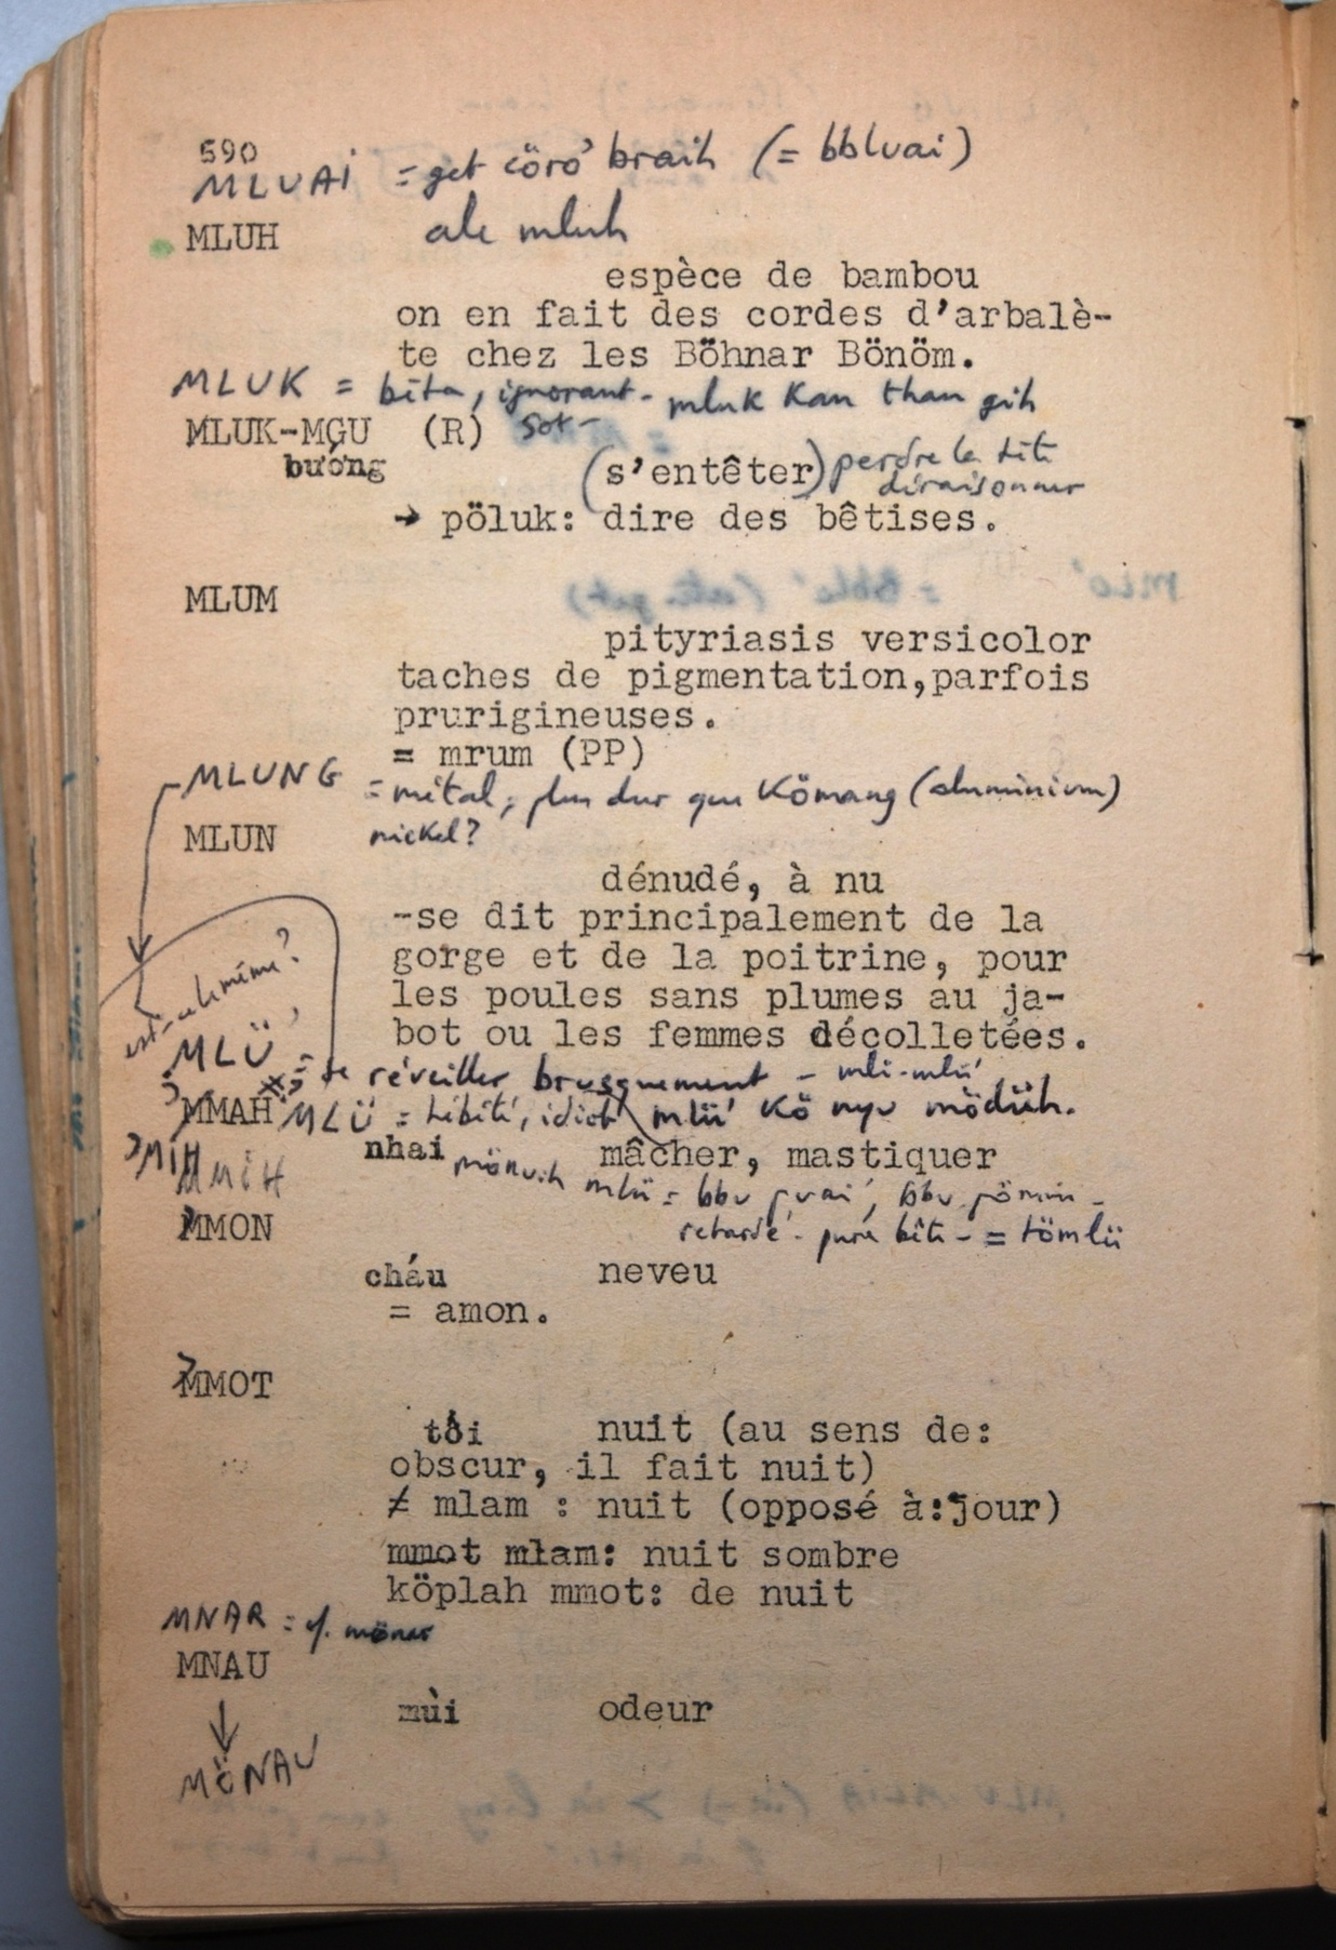 590
MLUAI = get cörơ̆ braih (= bbluai)
MLUH ale mluh
espèce de bambou
on en fait des cordes d'arbalè-
te chez les Böhnar Bönöm.
MLUK = bêta, ignorant - mluk kan than gih
MLUK-MGU (R) sot -
bướng (s'entêter) perdre la tête
déraisonner
→ pöluk: dire des bêtises.
MLUM
pityriasis versicolor
taches de pigmentation,parfois
prurigineuses.
= mrum (PP)
MLUNG = métal, plus dur que Kömang (aluminium)
MLUN nickel?
dénudé, à nu
-se dit principalement de la
gorge et de la poitrine, pour
les poules sans plumes au ja-
bot ou les femmes décolletées.
MLÜ = se réveiller brusquement - mli-mlü
MMAH MLÜ = hébété, idiot mlü kö nyu mödüh.
nhai mâcher, mastiquer
MIH MIH mlü = bbu
MMON retardé - = tömlü
cháu neveu
= amon.
MMOT
tối nuit (au sens de:
obscur, il fait nuit)
≠ mlam : nuit (opposé à:jour)
mmot mlam: nuit sombre
köplah mmot: de nuit
MNAR = cf. mönar
MNAU
mùi odeur
↓
MÖNAU